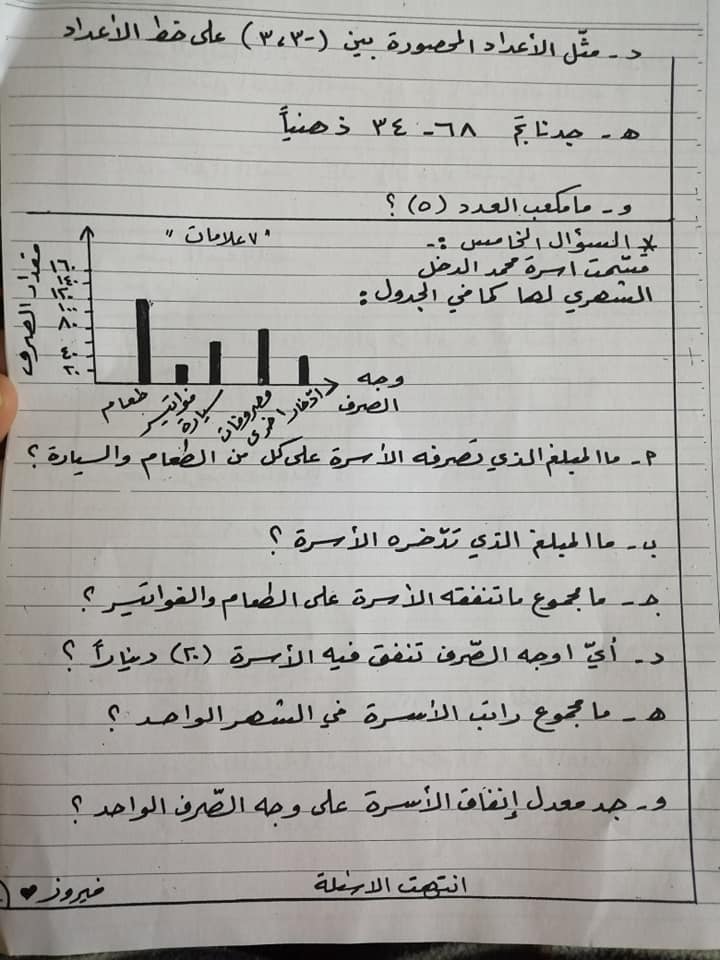 د - مثّل الأعداد المحصورة بين (-٣،٣) على خط الأعداد
ه - جد ناتج ٦٨ - ٣٤ ذهنياً
و - ما مكعب العدد (٥) ؟
"٧ علامات"
* السؤال الخامس :-
قسّمت اسرة محمد الدخل
الشهري لها كما في الجدول :
مقدار الصرف
٨٠
٤٠
٢٠
وجه
الصرف
طعام
فواتير
سيارة
مصروفات اخرى
ادّخار
٢ - ما المبلغ الذي تصرفه الأسرة على كل من الطعام والسيارة ؟
ب - ما المبلغ الذي تدّخره الأسرة ؟
ج - ما مجموع ما تنفقه الأسرة على الطعام والفواتير ؟
د - أيّ اوجه الصّرف تنفق فيه الأسرة (٢٠) ديناراً ؟
ه - ما مجموع راتب الأسرة في الشهر الواحد ؟
و - جد معدل إنفاق الأسرة على وجه الصّرف الواحد ؟
انتهت الاسئلة
فيروز ♥